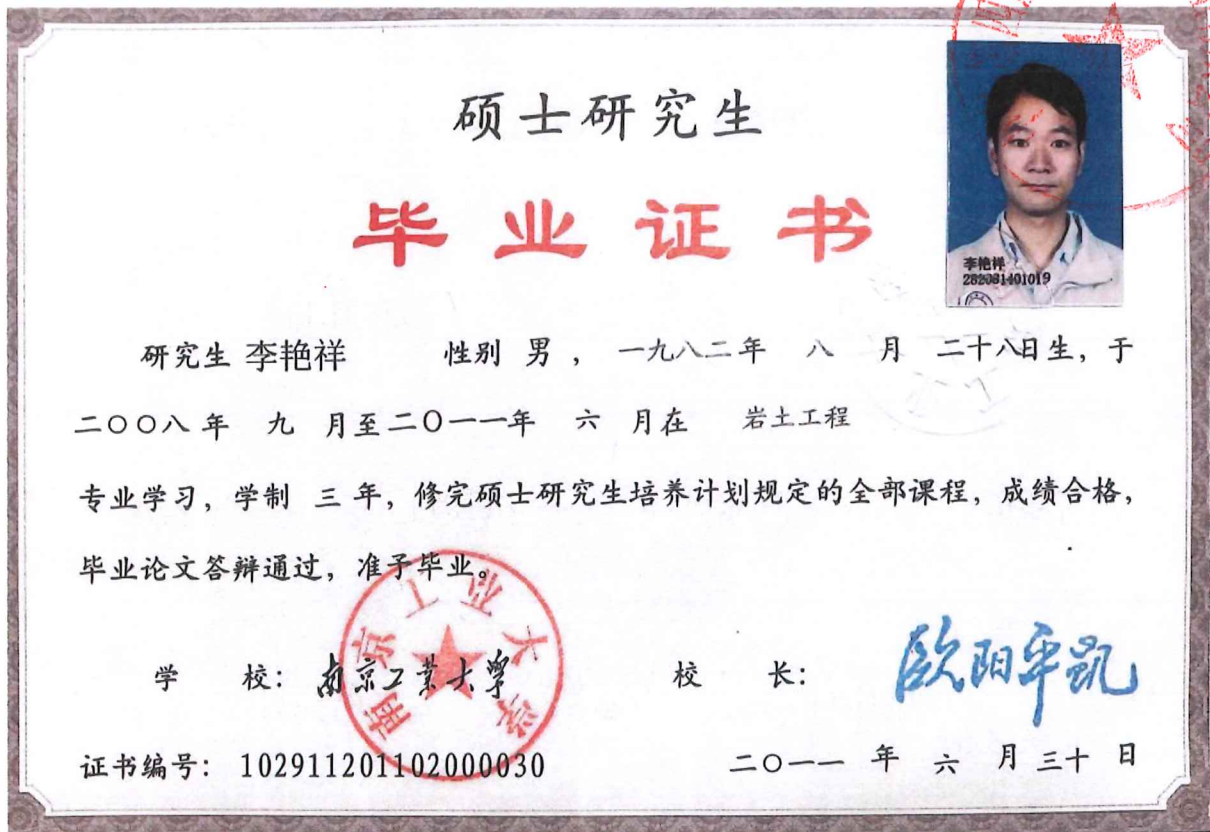 硕士研究生
毕业证书
李艳祥
282081401019
研究生 李艳祥 性别 男 ， 一九八二年 八 月 二十八日生，于
二〇〇八 年 九 月至二〇一一年 六 月在 岩土工程
专业学习，学制 三 年，修完硕士研究生培养计划规定的全部课程，成绩合格，
毕业论文答辩通过，准予毕业。
南京工业大学
学 校：南京工业大学 校 长：欧阳平凯
证书编号：102911201102000030 二〇一一 年 六 月 三十 日